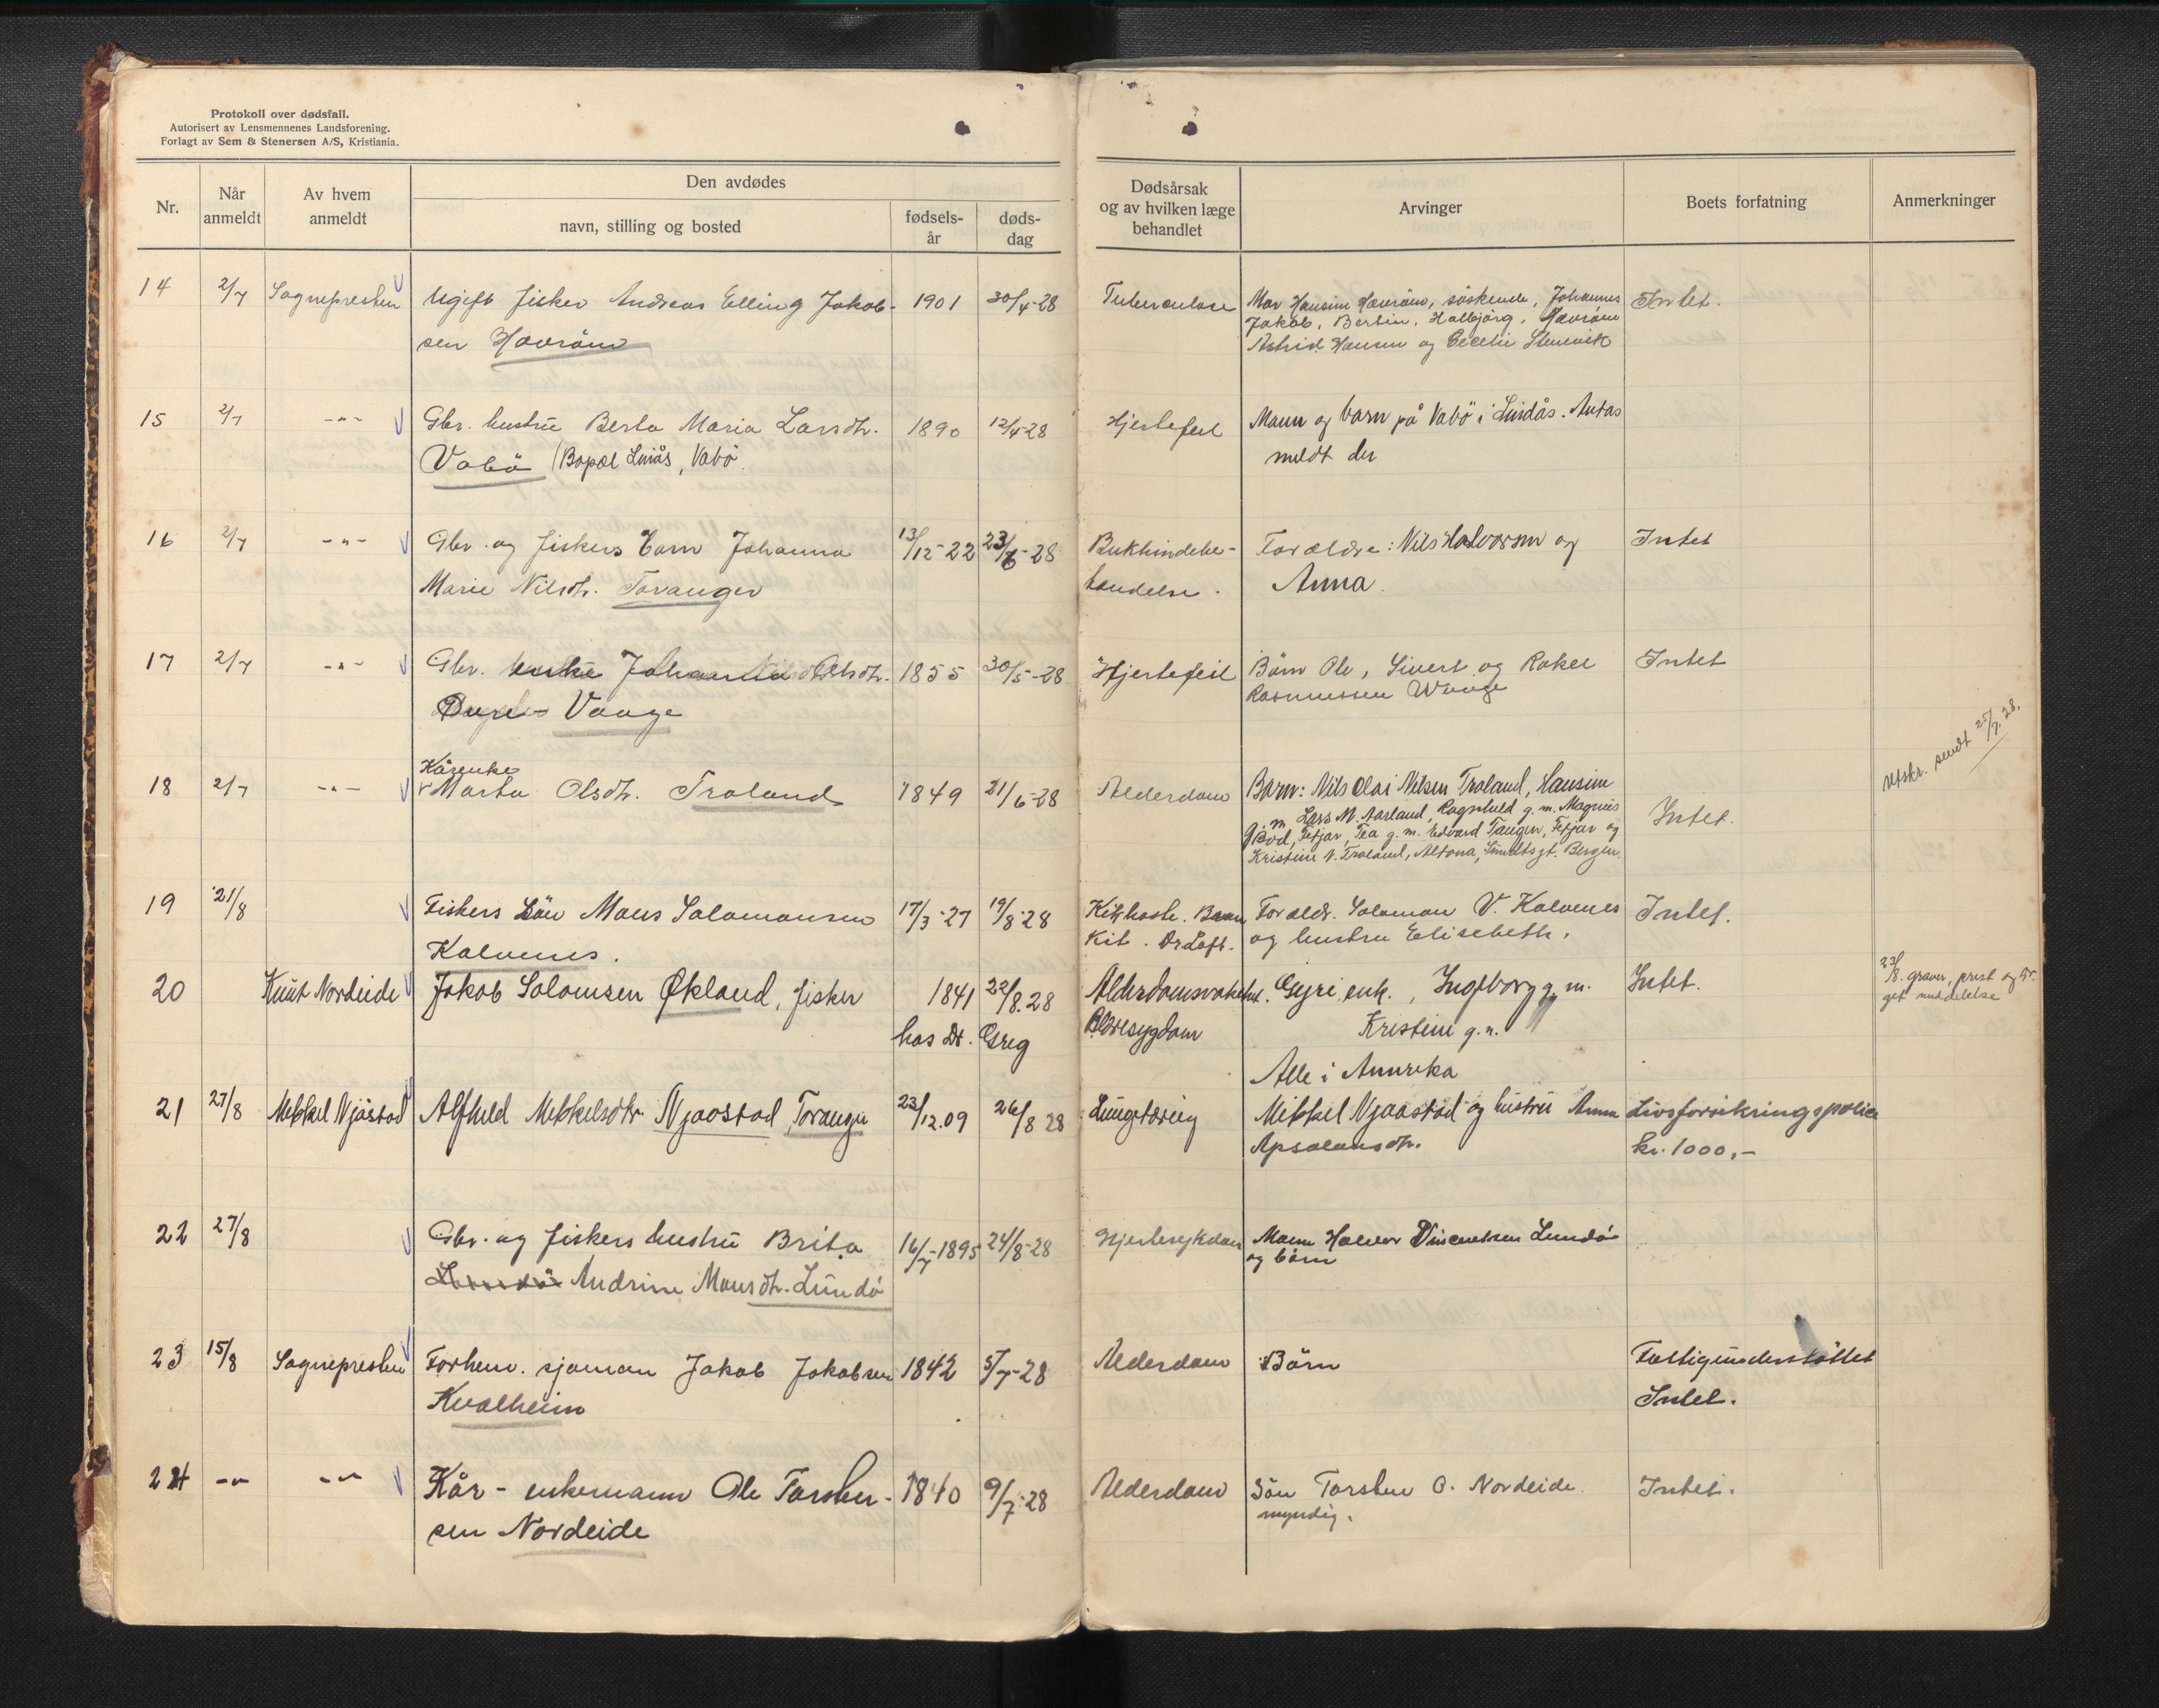 Protokoll over dødsfall.
Autorisert av Lensmennenes Landsforening.
Forlagt av Sem & Stenersen A/S, Kristiania.
Nr.
Når anmeldt
Av hvem anmeldt
Den avdødes
navn, stilling og bosted
fødsels-år
døds-dag
Dødsårsak og av hvilken læge behandlet
Arvinger
Boets forfatning
Anmerkninger
14 2/7 Sognepresten Ugift fisker Andreas Elling Jakob- 1901 30/4-28 Tuberculose Mor Hansine Havröm, söskende, Johannes Intet.
sen Havröm Jakob, Bertin, Halbjörg, Havröm
Astrid Hansen og Cecelie Stensvik
15 2/7 -"- Gbr. hustru Berta Maria Larsdtr. 1890 12/4-28 Hjertefeil Mann og barn på Vabö i Lindås. Antas
Vabö (Bopæl Linås, Vabö. meldt der
16 2/7 -"- Gbr. og fiskers barn Johanna 13/12-22 23/6-28 Bukhindebe- Forældre: Nils Halvorsen og Intet
Marie Nilsdtr. Toranger tendelse. Anna.
17 2/7 -"- Gbr. enke Johanna Olsdtr. 1855 30/5-28 Hjertefeil Börn Ole, Sivert og Rakel Intet
Vaage Rasmussen Waage
18 2/7 -"- Kårenke Marta Olsdtr. Troland 1849 21/6-28 Alderdom Barn: Nils Olai Nilsen Troland, Hansine
g.m. Lars N. Aarland, Ragnhild g.m. Magnus Intet.
Böd, Fitjar, Tea g.m. Edvard Tangen, Fitjar og
Kristine N. Troland, Altona, Smidtsgt. Bergen.
Utskr. sendt 25/7.28.
19 21/8 Fiskers Sön Mons Salomonsen 17/3-27 19/8-28 Kikhoste. Forældr. Salomon V. Kalvenes Intet.
Kalvenes. Dr Loft. og hustru Elisebeth.
20 Knut Nordeide Jakob Salomsen Økland, fisker 1841 22/8.28 Gyri enk., Ingeborg g.m. Intet. 23/8. graver, prest og
hos Dr. Greg Blæresygdom Kristine g.m. get meddelelse
Alle i Amerika
21 27/8 Mikkel Njåstad Alfhild Mikkelsdtr Njaastad, Toranger 23/12.09 26/8 28 Lungetæring Mikkel Njaastad og hustru Anna Livsforsikringspolice
Apsalonsdtr. kr. 1000,-
22 27/8 Gbr. og fiskers hustru Brita 16/7-1895 24/8-28 Hjertesykdom Mann Halvor Vincentsen Lundö
Andrine Monsdtr. Lundö og börn
23 15/8 Sognepresten Forhenv. sjöman Jakob Jakobsen 1842 5/7-28 Alderdom Börn Fattigunderstöttet
Kvalheim Intet.
24 -"- -"- Kår-enkemann Ole Torsten- 1840 9/7-28 Alderdom Sön Torsten O. Nordeide. Intet.
sen Nordeide myndig.